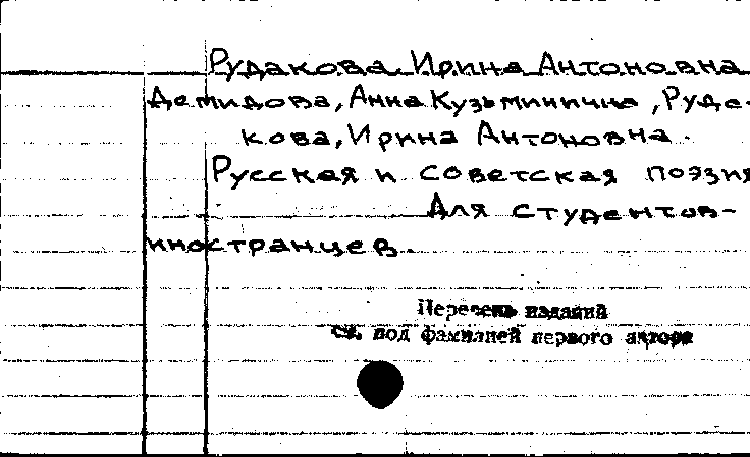 Рудакова Ирина Антоновна
Демидова, Анна Кузьминична, Руда-
кова, Ирина Антоновна.
Русская и советская поэзия
для студентов-
иностранцев.
Перечень изданий
см. под фамилией первого автора